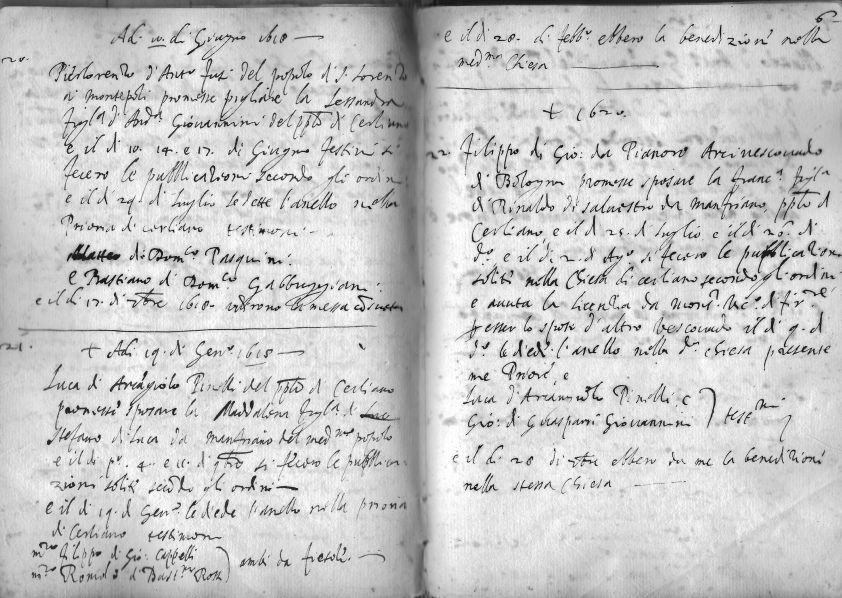 Adi 10. di Giugno 1618
20.
Pierlorenzo d'Anto. Fusi del popolo di S. Lorenzo
di montepoli promesse pigliare la Lessandra
figl.a d' Giovannini del ppto di Cerliano
e il di 10. 14. e 17. di Giugno festivi si
fecero le pubblicationi secondo gli ordini
e il di 29. di Luglio le dette l'anello nella
Prioria di cerliano testimoni
Matteo di Dom.co Pasquini
e Bastiano di Dom.co Gabbuggiani.
e il di 17. di 1618. udirono la messa
21.
+ Adi 19. di Gen.o 1618
Luca di Arcagiolo Pinelli del ppto di Cerliano
promesse sposare la Maddalena figl.a di
Stefano di Luca da manfriano del med.mo popolo
e il di p.o 4. e 11. di si fecero le pubblica
zioni soliti secodo gli ordini
e il di 19. di Gen.o le diede l'anello nella prioria
di Cerliano testimoni
m.ro Filippo di Gio: Cappelli
m.ro Romolo d' Rossi ambi da fiesole.
6
e il di 20. di febb.o ebbero la benedizione nella
med.ma Chiesa
+ 1620.
22.
Filippo di Gio: da Pianoro Arcivescovado
di Bologna promesse sposare la franc.a figl.a
di Rinaldo di salvestro da manfriano ppto di
Cerliano e il di 25. di Luglio e il di 26. di
d.o e il di 2. di Ago. si fecero le pubblicationi
soliti nella Chiesa di cerliano secondo gli ordini
e avuta la licentia da di
p esser lo sposo d'altro Vescovado il di 9. di
d.o le diede l'anello nella d.a chiesa presente
me Priore, e
Luca d'Arcangiolo Pinelli e
Gio: di Guasparri Giovannini testmni
e il di 20 di ebbero da me la benedizione
nella stessa Chiesa